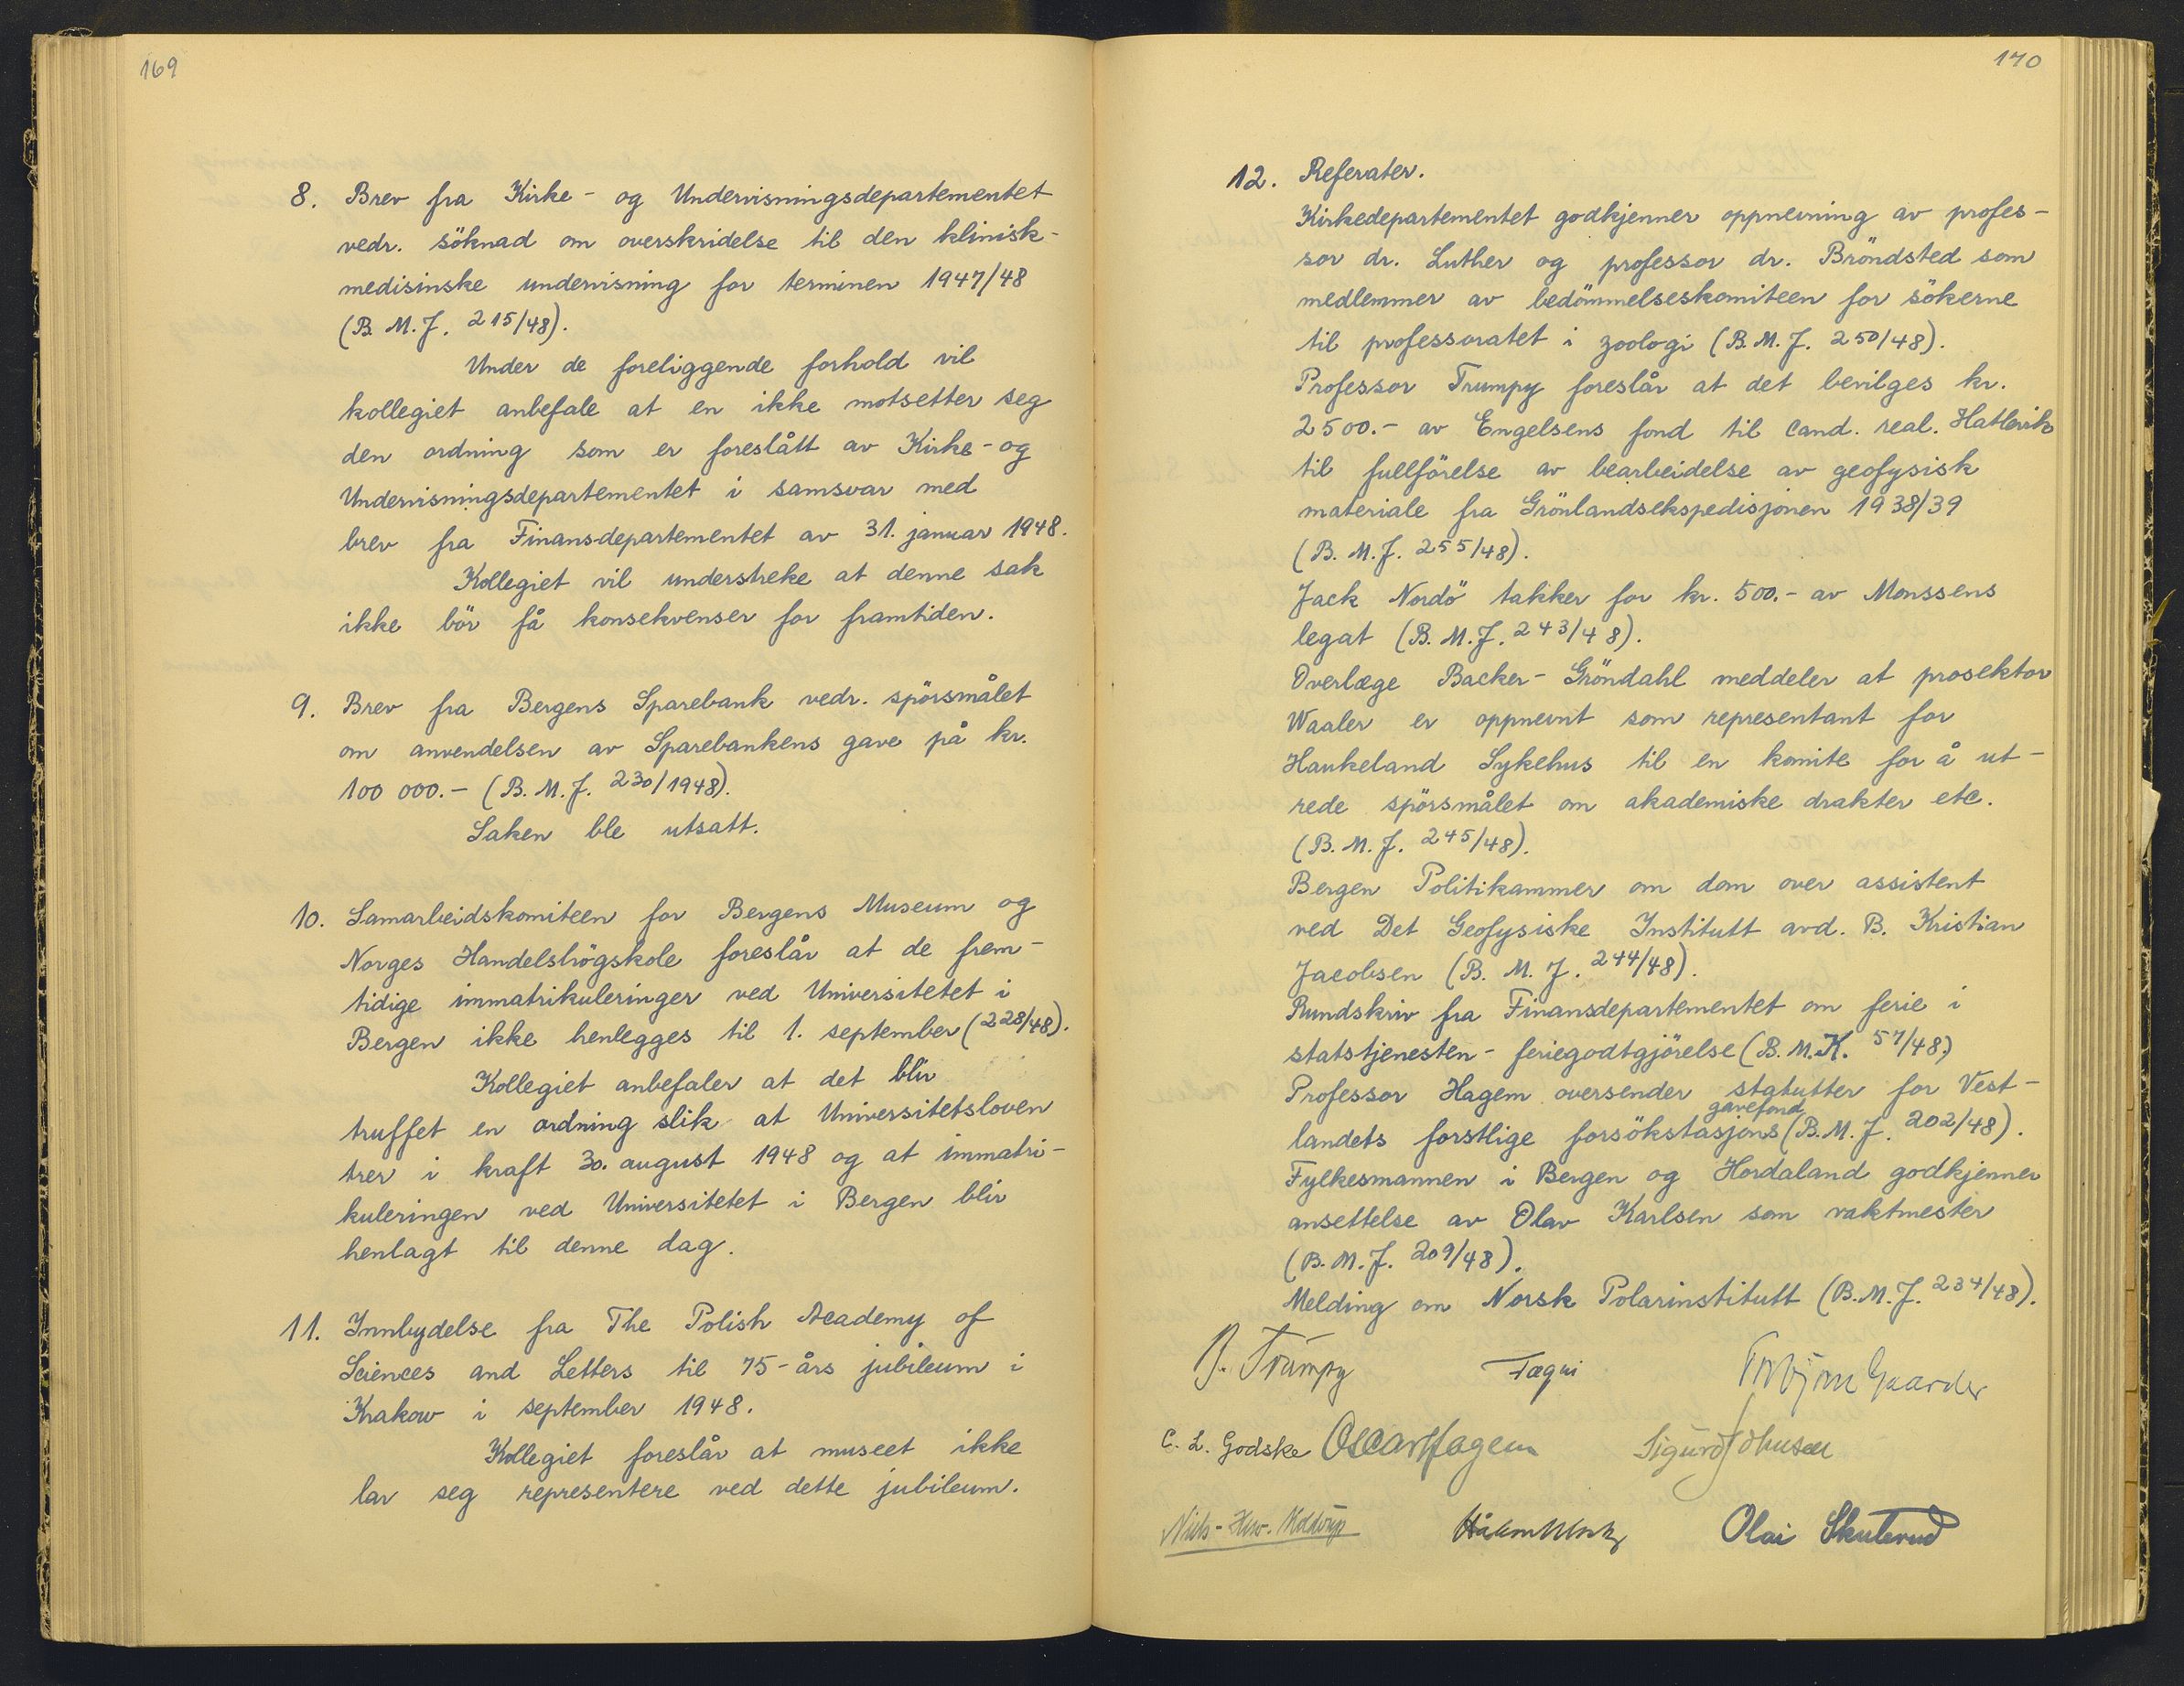 169
8. Brev fra Kirke- og Undervisningsdepartementet
vedr. söknad om overskridelse til den klinisk-
medisinske undervisning for terminen 1947/48
(B. M. J. 215/48).
Under de foreliggende forhold vil
kollegiet anbefale at en ikke motsetter seg
den ordning som er foreslått av Kirke- og
Undervisningsdepartementet i samsvar med
brev fra Finansdepartementet av 31. januar 1948.
Kollegiet vil understreke at denne sak
ikke bör få konsekvenser for framtiden.
9. Brev fra Bergens Sparebank vedr. spörsmålet
om anvendelsen av Sparebankens gave på kr.
100 000.- (B. M. J. 230/1948).
Saken ble utsatt.
10. Samarbeidskomiteen for Bergens Museum og
Norges Handelshögskole foreslår at de frem-
tidige immatrikuleringer ved Universitetet i
Bergen ikke henlegges til 1. september (228/48).
Kollegiet anbefaler at det blir
truffet en ordning slik at Universitetsloven
trer i kraft 30. august 1948 og at immatri-
kuleringen ved Universitetet i Bergen blir
henlagt til denne dag.
11. Innbydelse fra The Polish Academy of
Sciences and Letters til 75-års jubileum i
Krakow i september 1948.
Kollegiet foreslår at museet ikke
lar seg representere ved dette jubileum.
170
12. Referater.
Kirkedepartementet godkjenner oppnevning av profes-
sor dr. Luther og professor dr. Bröndsted som
medlemmer av bedömmelseskomiteen for sökerne
til professoratet i zoologi (B. M. J. 250/48).
Professor Trumpy foreslår at det bevilges kr.
2500.- av Engelsens fond til cand. real. Hatlevik
til fullförelse av bearbeidelse av geofysisk
materiale fra Grönlandsekspedisjonen 1938/39
(B. M. J. 255/48).
Jack Nordö takker for kr. 500.- av Monssens
legat (B. M. J. 243/48).
Overlæge Backer-Gröndahl meddeler at prosektor
Waaler er oppnevnt som representant for
Haukeland Sykehus til en komite for å ut-
rede spörsmålet om akademiske drakter etc.
(B. M. J. 245/48).
Bergen Politikammer om dom over assistent
ved Det Geofysiske Institutt avd. B. Kristian
Jacobsen (B. M. J. 244/48).
Rundskriv fra Finansdepartementet om ferie i
statstjenesten - feriegodtgjörelse (B. M. K. 57/48)
Professor Hagem oversender statutter for Vest-
landets forstlige forsökstasjons gavefond (B. M. J. 202/48).
Fylkesmannen i Bergen og Hordaland godkjenner
ansettelse av Olav Karlsen som vaktmester
(B. M. J. 209/48).
Melding om Norsk Polarinstitutt (B. M. J. 234/48).
B. Trumpy Fægri Torbjörn Gaarder
C. L. Godske Oscar Hagem Sigurd Johnsen
Niels-Hnr. Kolderup Olai Skulerud